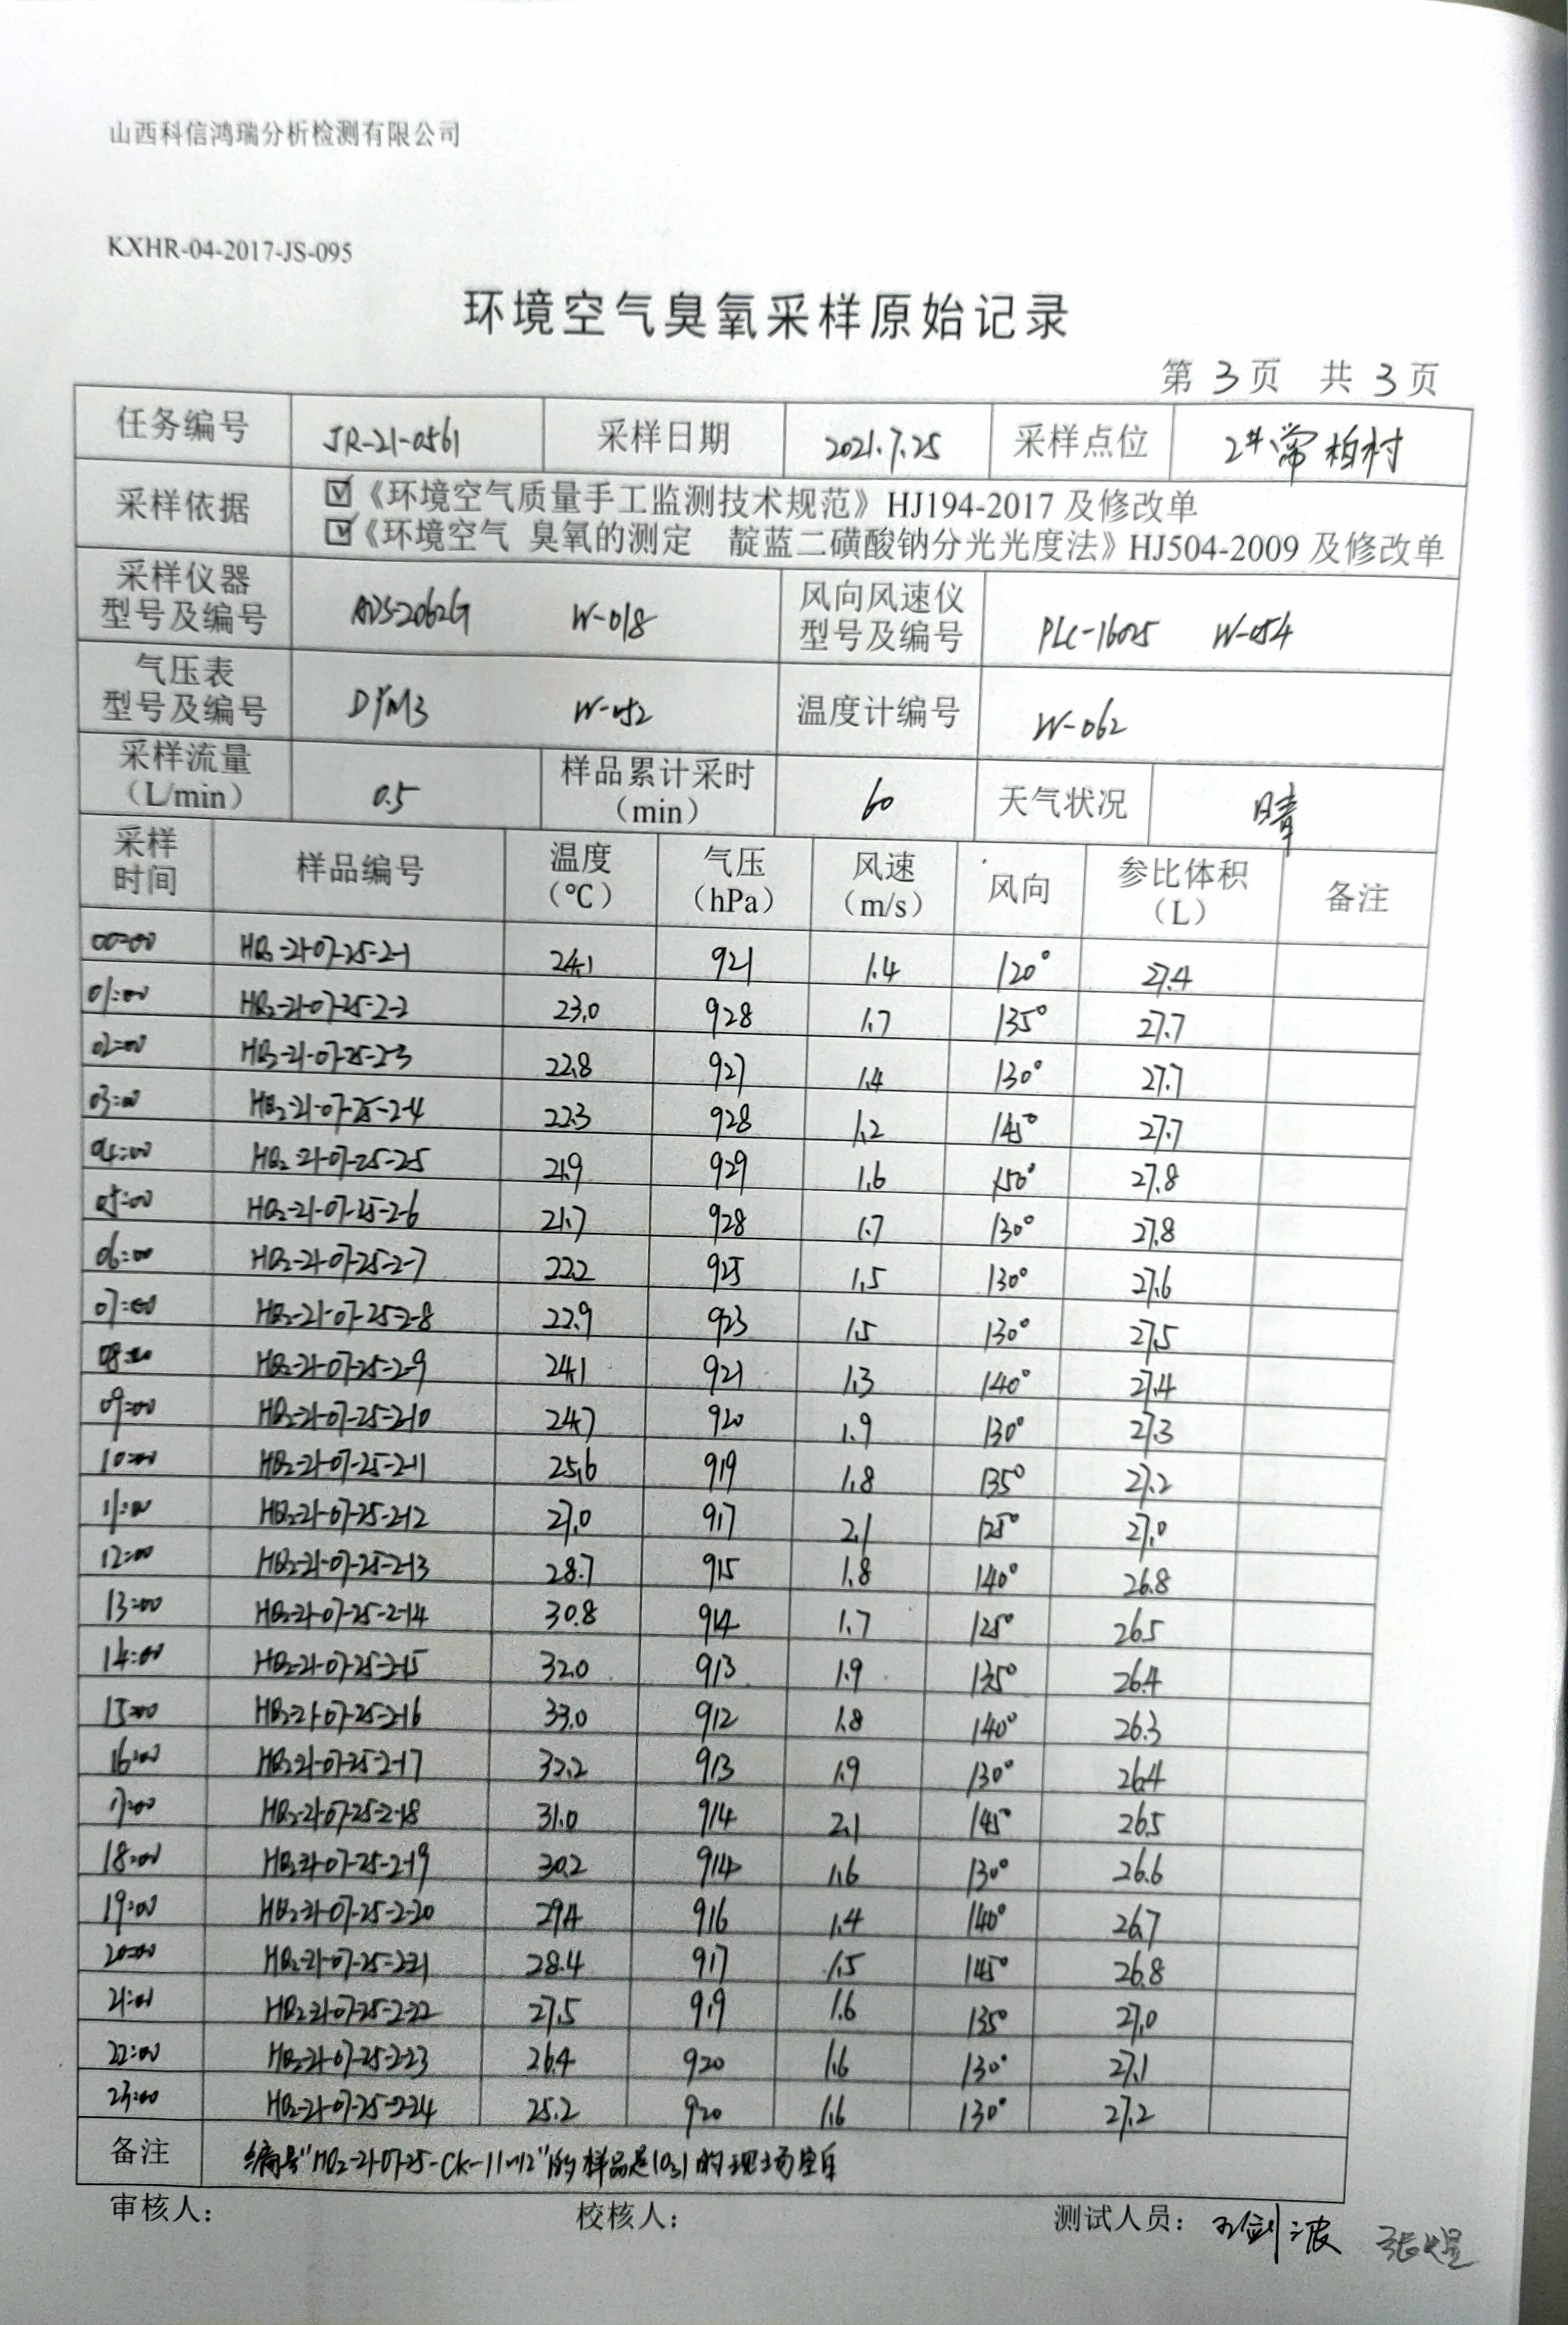 山西科信鸿瑞分析检测有限公司
KXHR-04-2017-JS-095
环境空气臭氧采样原始记录
第 3 页 共 3 页
任务编号 JR-21-0561 采样日期 2021.7.25 采样点位 2#常柏村
采样依据 ☑《环境空气质量手工监测技术规范》HJ194-2017 及修改单
☑《环境空气 臭氧的测定 靛蓝二磺酸钠分光光度法》HJ504-2009 及修改单
采样仪器 型号及编号 ADS-2062G W-018 风向风速仪 型号及编号 PLC-16025 W-054
气压表 型号及编号 DYM3 W-052 温度计编号 W-062
采样流量 (L/min) 0.5 样品累计采时 (min) 60 天气状况 晴
采样时间 样品编号 温度 (℃) 气压 (hPa) 风速 (m/s) 风向 参比体积 (L) 备注
00:00 HQ2-21-07-25-2-1 24.1 921 1.4 120° 27.4
01:00 HQ2-21-07-25-2-2 23.0 928 1.7 135° 27.7
02:00 HQ2-21-07-25-2-3 22.8 927 1.4 130° 27.7
03:00 HQ2-21-07-25-2-4 22.3 928 1.2 145° 27.7
04:00 HQ2-21-07-25-2-5 21.9 929 1.6 150° 27.8
05:00 HQ2-21-07-25-2-6 21.7 928 1.7 130° 27.8
06:00 HQ2-21-07-25-2-7 22.2 925 1.5 130° 27.6
07:00 HQ2-21-07-25-2-8 22.9 923 1.5 130° 27.5
08:00 HQ2-21-07-25-2-9 24.1 921 1.3 140° 27.4
09:00 HQ2-21-07-25-2-10 24.7 920 1.9 130° 27.3
10:00 HQ2-21-07-25-2-11 25.6 919 1.8 135° 27.2
11:00 HQ2-21-07-25-2-12 27.0 917 2.1 125° 27.0
12:00 HQ2-21-07-25-2-13 28.7 915 1.8 140° 26.8
13:00 HQ2-21-07-25-2-14 30.8 914 1.7 125° 26.5
14:00 HQ2-21-07-25-2-15 32.0 913 1.9 135° 26.4
15:00 HQ2-21-07-25-2-16 33.0 912 1.8 140° 26.3
16:00 HQ2-21-07-25-2-17 32.2 913 1.9 130° 26.4
17:00 HQ2-21-07-25-2-18 31.0 914 2.1 145° 26.5
18:00 HQ2-21-07-25-2-19 30.2 914 1.6 130° 26.6
19:00 HQ2-21-07-25-2-20 29.4 916 1.4 140° 26.7
20:00 HQ2-21-07-25-2-21 28.4 917 1.5 145° 26.8
21:01 HQ2-21-07-25-2-22 27.5 919 1.6 135° 27.0
22:00 HQ2-21-07-25-2-23 26.4 920 1.6 130° 27.1
23:00 HQ2-21-07-25-2-24 25.2 920 1.6 130° 27.2
备注 编号"HQ2-21-07-25-CK-11~12"的样品是(O3)的现场空白
审核人： 校核人： 测试人员： 王剑波 张煜